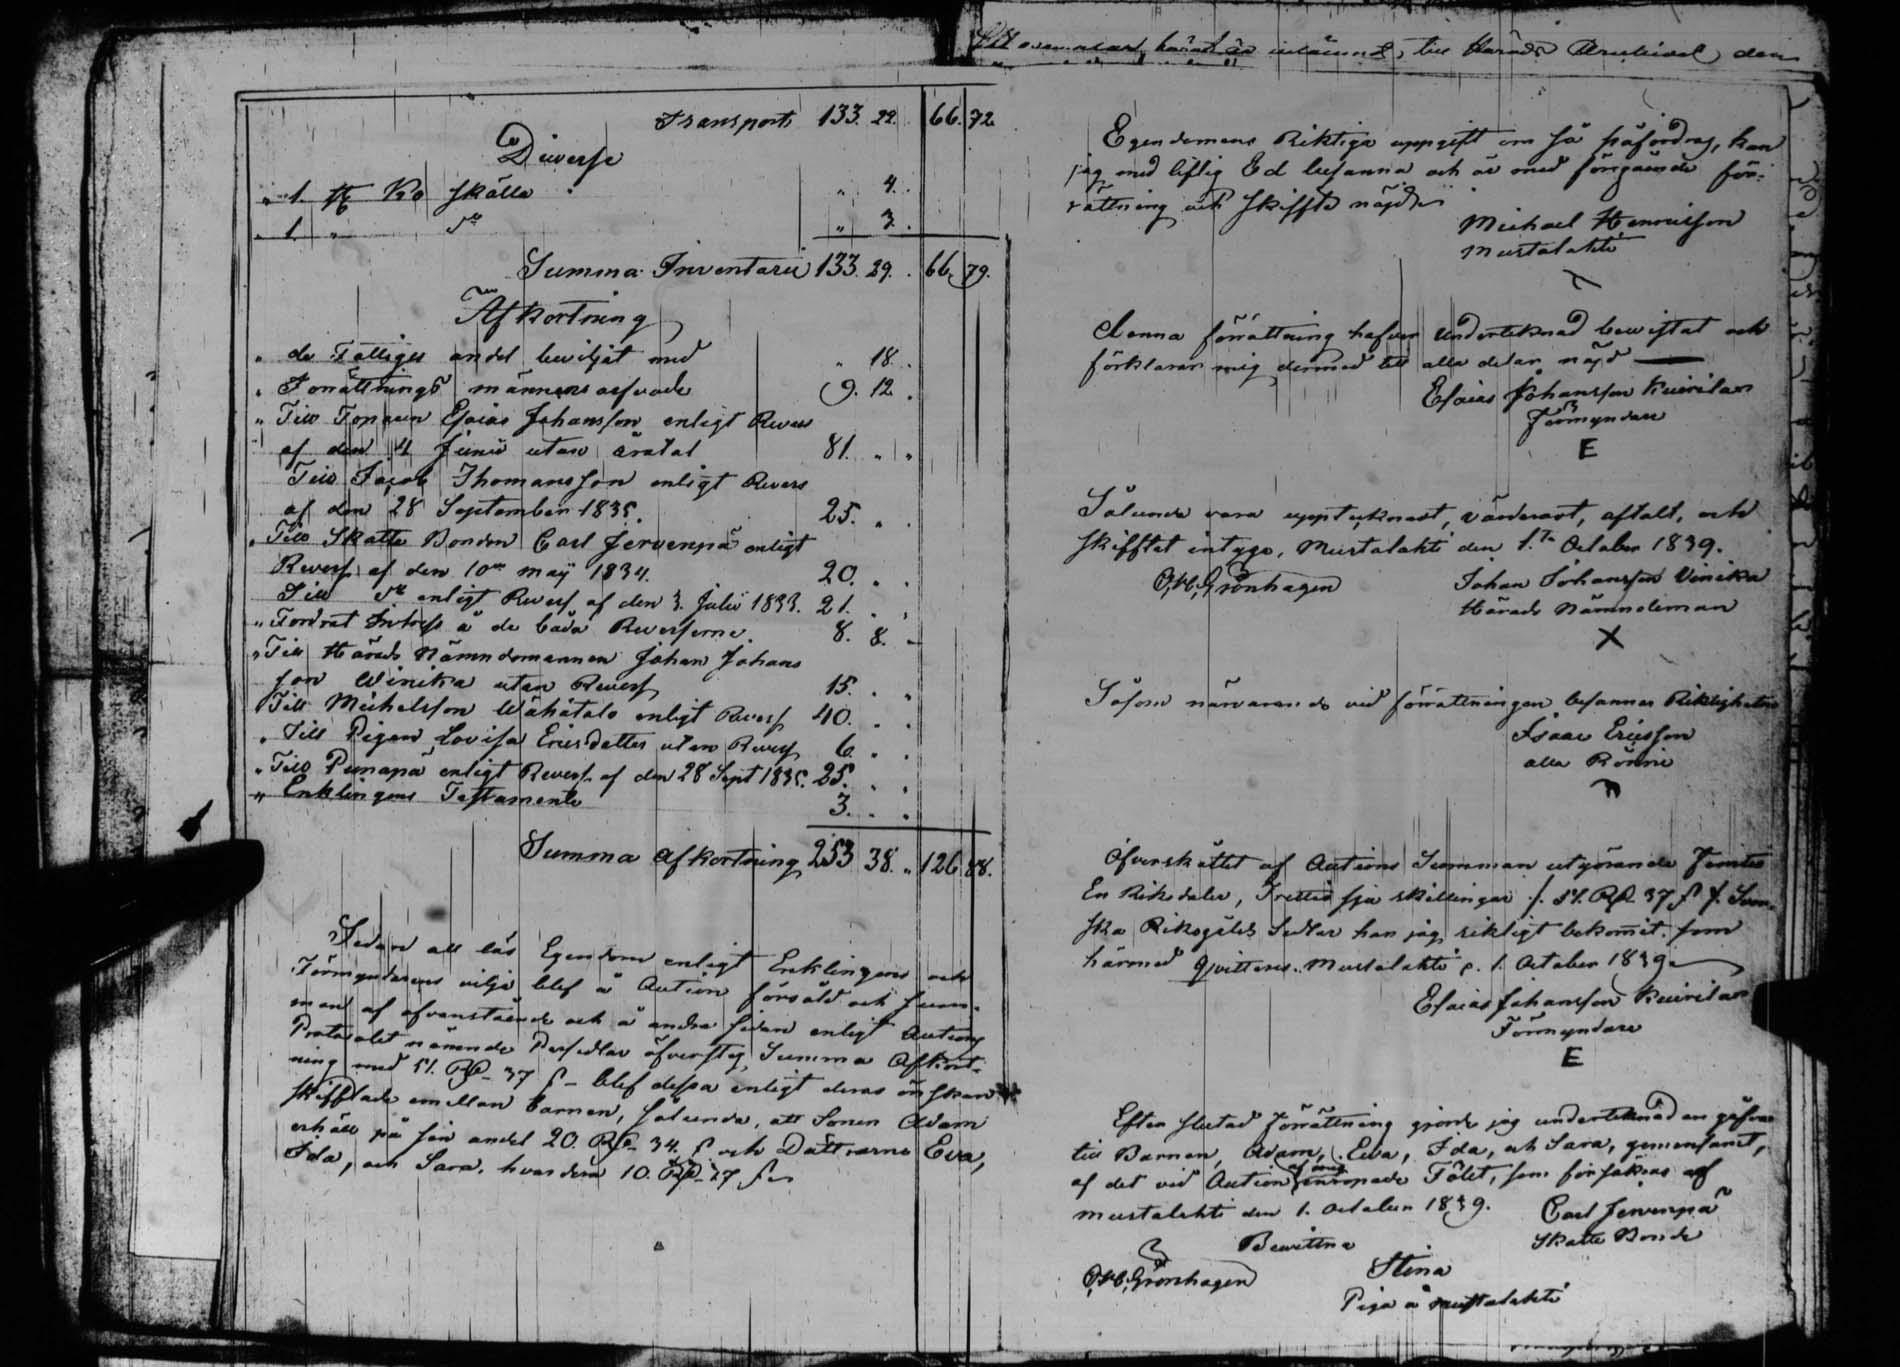 Transport 133. 22. 66. 72
Diverse
" 1. st Ko skälla " 4.
" 1. " do " 3.
Summa Inventarii 133. 29. 66. 79.
Afkortning
" de Fattiges andel beviljat med " 18.
" Förrättnings männens arfvode 9. 12.
" Till Esaias Johansson enligt Revers
af den 4 Junii utan åratal 81. " "
Till Jacob Thomansson enligt Revers
af den 28 September 1835. 25. " "
" Till Skatte Bonden Carl Jervenpä enligt
Revers af den 10de maij 1834. 20. " "
Till do enligt Revers af den 3. Julii 1833. 21. " "
" Fordrat Intress å de båda Reverserne. 8. 8. "
" Till Härads Nämndemannen Johan Johans
son Winika utan Revers 15. " "
Till Michelsson Wähätalo enligt Revers 40. " "
" Till Pigan Lovisa Ericsdotter utan Revers 6. " "
" Till Punapä enligt Revers af den 28 Sept 1835. 25. " "
" Enklingens Testamente 3. " "
Summa Afkortning 253 38. " 126. 88.
Sedan all lös Egendom enligt Enklingens och
Förmyndarens vilja blef å Auction försåld och sum-
man af ofvanstående och å andra sidan enligt Auctions
Protocolet nämnde Persedlar öfversteg Summa Afkort-
ning med 51. Rd 37 s blef dessa enligt deras önskan
skifftade emellan barnen, sålunda, att Sonen Adam
erhåll på sin andel 20 Rd 34. s och Döttrarne Eva,
Ida, och Sara, hvardera 10. Rd 17 s
till Härads Archivet den
Egendomens Riktiga uppgift om så påfordras, kan
jag med liflig Ed besanna och är med föregående för-
rättning och skiffte nöjd
Michael Henricsson
Mustalahti
Denna förrättning hafver Undertecknad bewistat och
förklarar mig dermed till alla delar nöjd
Esaias Johansson Kuivila
Förmyndare
E
Sålunda vara upptecknadt, värderat, aftalt, och
skifftat intyga, Mustalahti den 1.ta October 1839.
Grönhagen Johan Johansson Vinika
Härads Nämndeman
X
Såsom närvarande vid förrättningen besannas Riktigheten
Isaac Ericsson
alla Rönni
Öfverskåttet af Auctions Summan utgörande Femtio
En Riksdaler, Trettio sju skillingar /. 51. Rd 37 s /. Sven-
ska Riksgälds Sedlar har jag riktigt bekommit, som
härmed qvitteras. Mustalahti d. 1. October 1839.
Esaias Johansson Kuivila
Förmyndare
E
Efter slutad förrättning gjorde jag undertecknad en gåfva
till Barnen, Adam, Eva, Ida, och Sara, gemensamt,
af det vid Auction af mig inropade Fölet, som försäkras af
Mustalahti den 1. October 1839. Carl Jervenpä
Skatte Bonde
Bewittna
Grönhagen Stina
Piga å Mustalahti